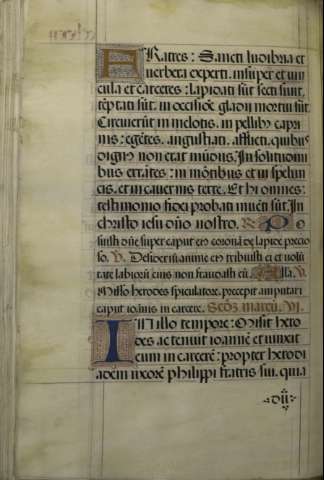 FRatres: Sancti ludibria et
uerbera experti. insuper et uin
cula et carceres: lapidati sũt secti sunt.
tẽptati sũt. in occisiõe gladii mortui sũt
Circuierũt in melotis. in pellibꝰ capri
nis: egẽtes. angustiati. afflicti. quibꝰ
dignꝰ non erat mũdus. In solitudini
bus errãtes: in mõtibus et in spelun
cis. et in cauernis terre. Et hi omnes:
testimonio fidei probati inuẽti sũt. In
christo iesu dño nostro. R. Po
suisti dñe super caput eiꝰ coronã de lapide precio
so. V. Desideriũ anime eiꝰ tribuisti ei et uolũ
tate labiorũ eius non fraudasti eũ. Alla. V.
Misso herodes spiculatore. precepit amputari
caput ioãnis in carcere. Scdz̃ marcũ. VI.
IN illo tempore: Misit hero
des ac tenuit ioannẽ et uinxit
eum in carcerẽ: propter herodi
adem uxorẽ philippi fratris sui. quia